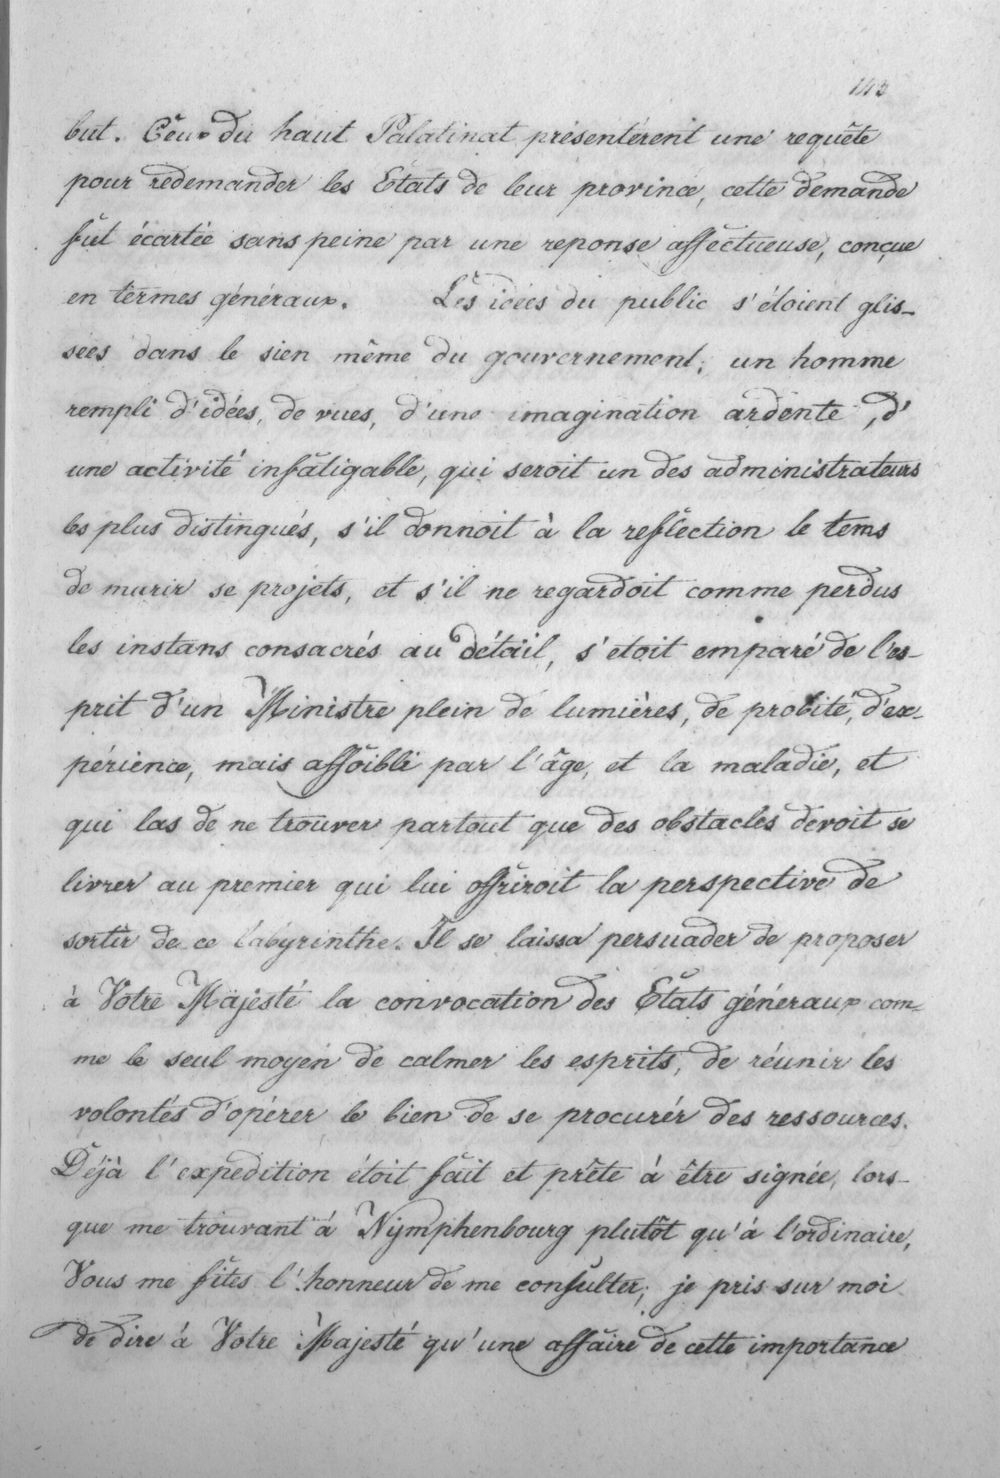 143
but. Ceux du haut Palatinat présentérent une requête
pour redemander les Etats de leur province, cette demande
fut écartée sans peine par une reponse affectueuse, conçue
en termes généraux. Les idées du public s'étoient glis-
sées dans le sien même du gouvernement; un homme
rempli d'idées, de vues, d'une imagination ardente, d'
une activité infatigable, qui seroit un des administrateurs
les plus distingués, s'il donnoit à la reflection le tems
de murir se projets, et s'il ne regardoit comme perdus
les instans consacrés au détail, s'etoit emparé de l'es-
prit d'un Ministre plein de lumières, de probité, d'ex-
périence, mais affoibli par l'âge, et la maladie, et
qui las de ne trouver partout que des obstacles devoit se
livrer au premier qui lui offriroit la perspective de
sortir de ce labyrinthe. Il se laissa persuader de proposer
à Votre Majesté la convocation des Etats généraux com-
me le seul moyen de calmer les esprits, de réunir les
volontés d'opérer le bien de se procurér des ressources.
Déjà l'expedition étoit fait et prête à être signée, lors-
que me trouvant à Nymphenbourg plutôt qu'à l'ordinaire,
Vous me fites l'honneur de me consulter; je pris sur moi
de dire à Votre Majesté qu'une affaire de cette importance